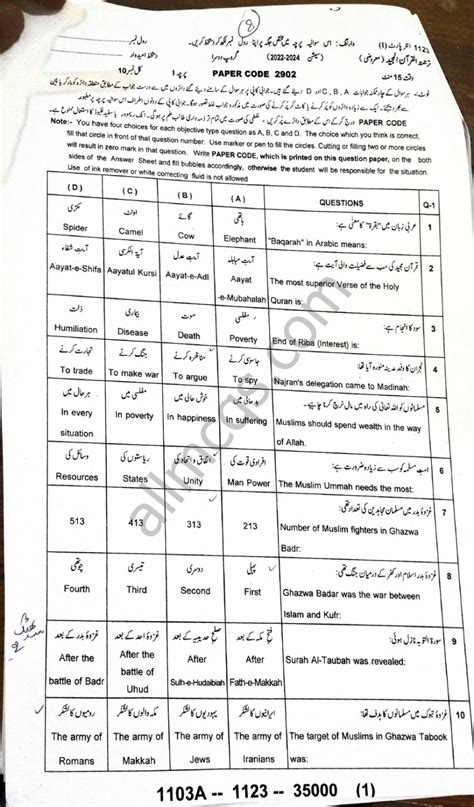 8
1123 انٹر پارٹ (I) وارننگ: اس سوالیہ پرچہ میں مختص جگہ پر اپنا رول نمبر لکھ کر دستخط کریں۔ رول نمبر
ترجمۃ القرآن المجید (معروضی) (سیشن 2022-2024) گروپ دوسرا دستخط امیدوار
وقت 15 منٹ PAPER CODE 2902 پرچہ I کل نمبر 10
PAPER CODE
Note:- You have four choices for each objective type question as A, B, C and D. The choice which you think is correct;
fill that circle in front of that question number. Use marker or pen to fill the circles. Cutting or filling two or more circles
will result in zero mark in that question. Write PAPER CODE, which is printed on this question paper, on the both
sides of the Answer Sheet and fill bubbles accordingly, otherwise the student will be responsible for the situation.
Use of ink remover or white correcting fluid is not allowed
(D) (C) (B) (A) QUESTIONS Q-1
مکڑی اونٹ گائے ہاتھی عربی زبان میں "بقرۃ" کا معنی ہے: 1
Spider Camel Cow Elephant "Baqarah" in Arabic means:
آیت شفاء آیۃ الکرسی آیت عدل آیت مباہلہ قرآن مجید کی سب سے فضیلت والی آیت ہے: 2
Aayat-e-Shifa Aayatul Kursi Aayat-e-Adl Aayat The most superior Verse of the Holy
-e-Mubahalah Quran is:
ذلت بیماری موت مفلسی سود کا انجام ہے: 3
Humiliation Disease Death Poverty End of Riba (Interest) is:
تجارت کرنے جنگ کرنے مناظرہ کرنے جاسوسی کرنے نجران کا وفد مدینہ منورہ آیا تھا: 4
To trade To make war To argue To spy Najran's delegation came to Madinah:
ہر حال میں مفلسی میں خوش حالی میں بدحالی میں مسلمانوں کو اللہ تعالیٰ کی راہ میں مال خرچ کرنا چاہیے۔ 5
In every In poverty In happiness In suffering Muslims should spend wealth in the way
situation of Allah.
وسائل کی ریاستوں کی اتفاق و اتحاد کی افرادی قوت کی امت مسلمہ کو سب سے زیادہ ضرورت ہے: 6
Resources States Unity Man Power The Muslim Ummah needs the most:
غزوۂ بدر میں مسلمان مجاہدین کی تعداد تھی: 7
513 413 313 213 Number of Muslim fighters in Ghazwa
Badr:
چوتھی تیسری دوسری پہلی غزوۂ بدر اسلام اور کفر کے درمیان جنگ تھی: 8
Fourth Third Second First Ghazwa Badar was the war between
Islam and Kufr:
غزوۂ بدر کے بعد غزوۂ احد کے بعد صلح حدیبیہ کے بعد فتح مکہ کے بعد سورۃ التوبہ نازل ہوئی: 9
After the After the After After Surah Al-Taubah was revealed:
battle of Badr battle of Sulh-e-Hudaibiah Fath-e-Makkah
Uhud
رومیوں کا لشکر مکہ والوں کا لشکر یہودیوں کا لشکر ایرانیوں کا لشکر غزوۂ تبوک میں مسلمانوں کا ہدف تھا: 10
The army of The army of The army of The army of The target of Muslims in Ghazwa Tabook
Romans Makkah Jews Iranians was:
1103A -- 1123 -- 35000 (1)
allmcqs.com